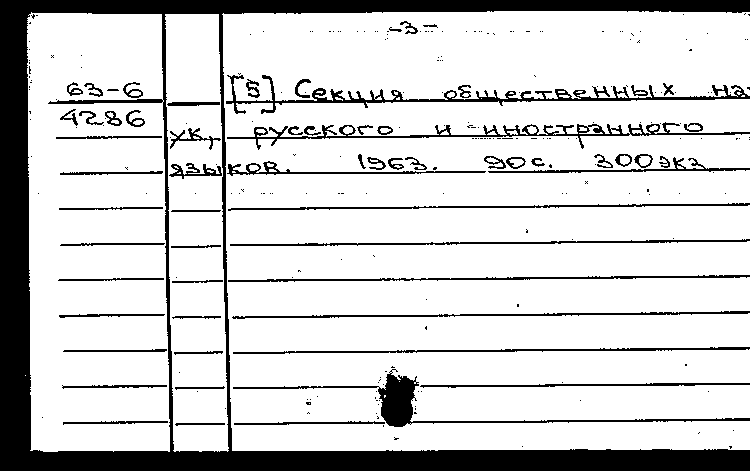 -3-
63-6 [5] Секция общественных на-
4286
ук, русского и иностранного
языков. 1963. 90с. 300экз